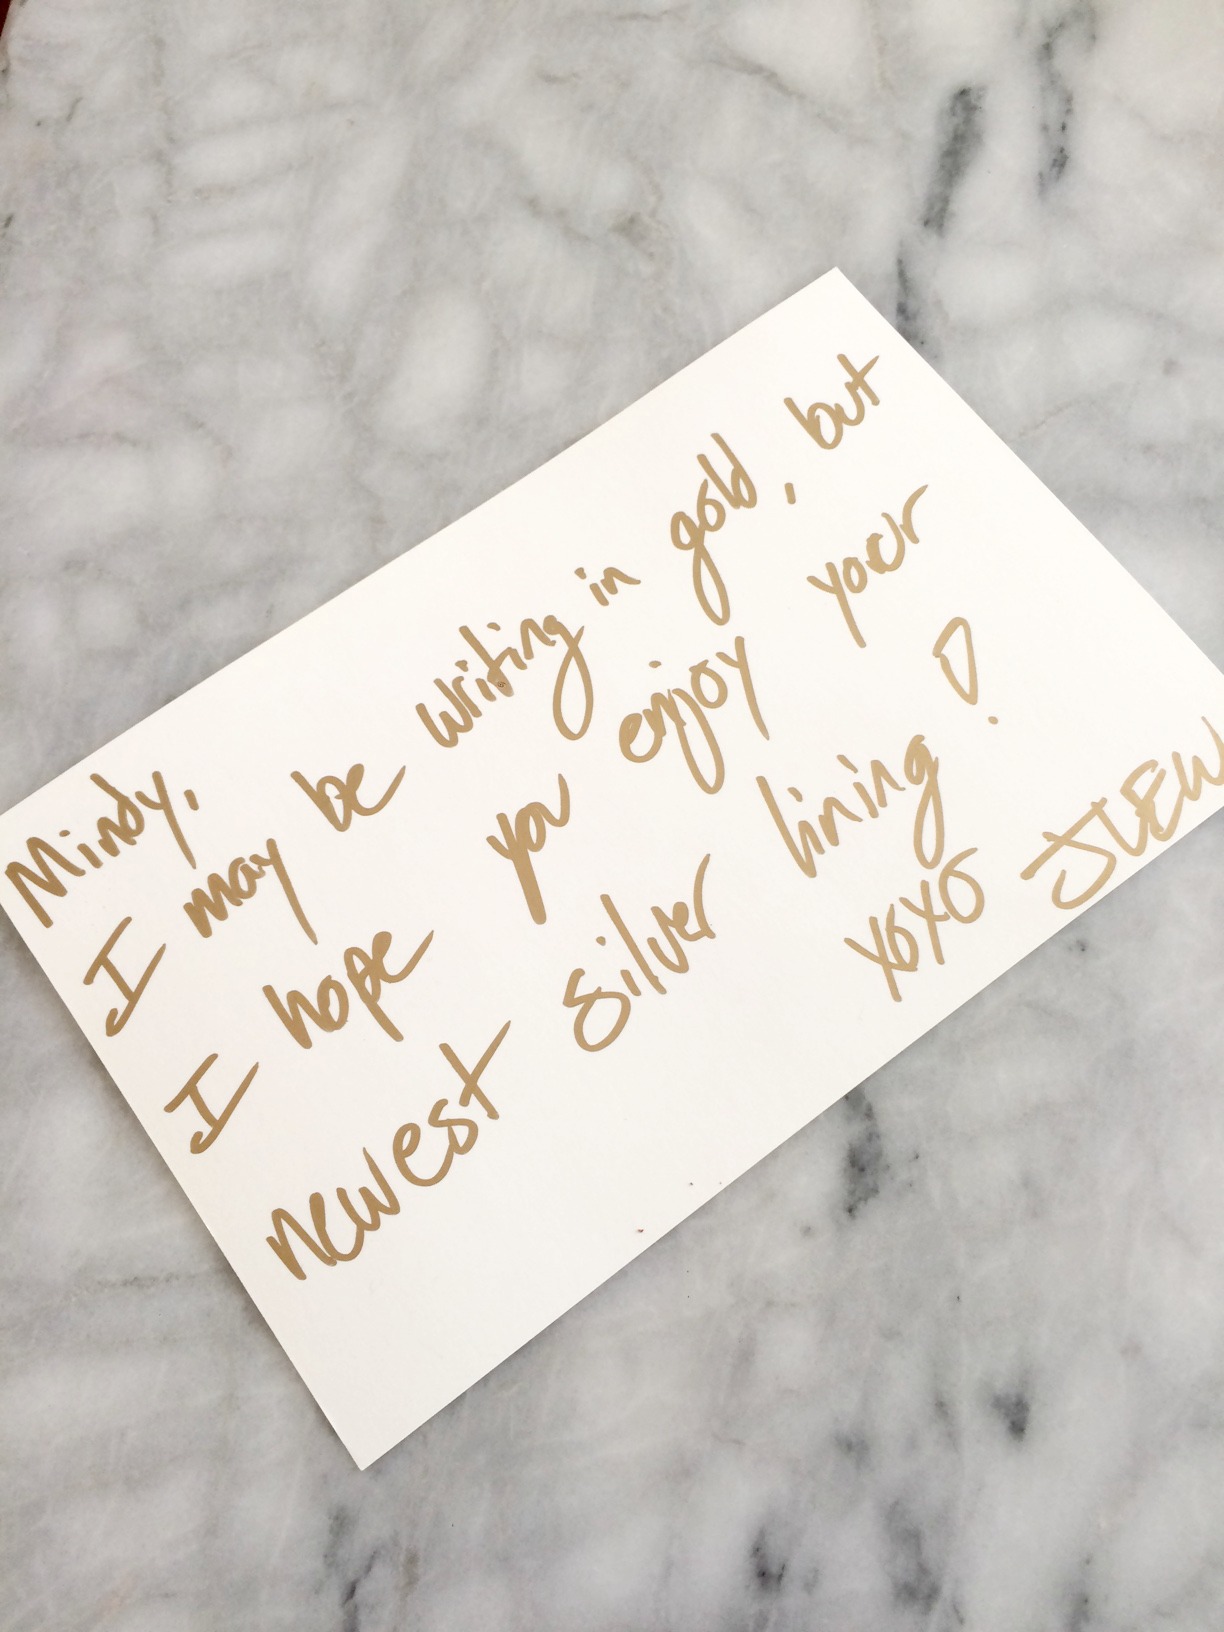 Mindy,
I may be writing in gold, but
I hope you enjoy your
newest silver lining!
XOXO JLEW